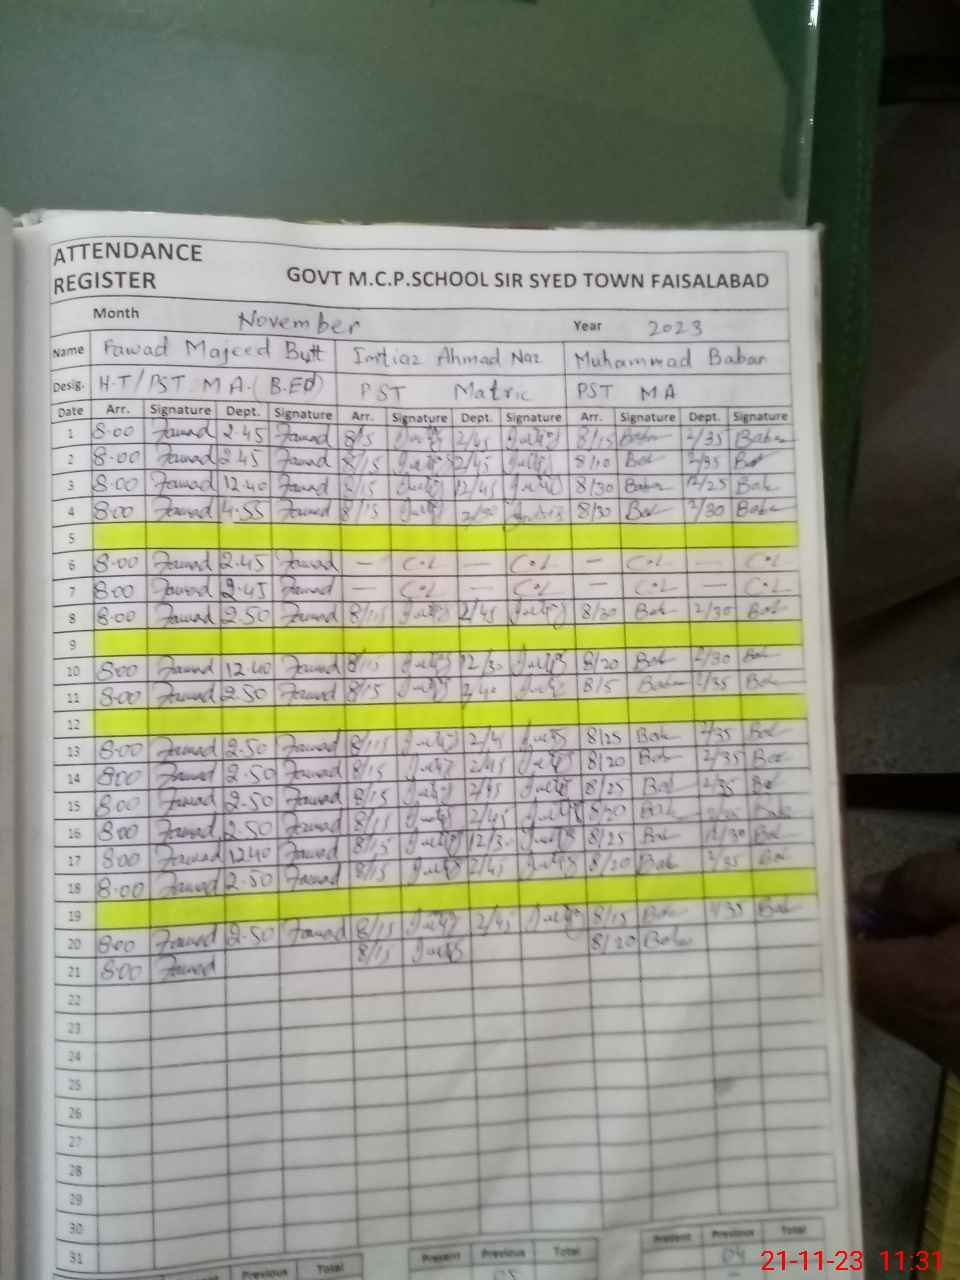 ATTENDANCE
REGISTER
GOVT M.C.P.SCHOOL SIR SYED TOWN FAISALABAD
Month November Year 2023
Name Fawad Majeed Butt Imtiaz Ahmad Naz Muhammad Babar
Desig. H.T/PST M A.(B.Ed) PST Matric PST MA
Date Arr. Signature Dept. Signature Arr. Signature Dept. Signature Arr. Signature Dept. Signature
1 8.00 Fawad 2.45 Fawad 8/15 2/45 8/15 Babar 2/35 Babar
2 8.00 Fawad 2.45 Fawad 8/15 2/45 8/10 Bab 2/35
3 8.00 Fawad 12.40 Fawad 8/15 12/45 8/30 Babar 12/25 Bab
4 8.00 Fawad 4.55 Fawad 8/15 8/30 Bab 2/30 Babar
5
6 8.00 Fawad 2.45 Fawad — C.L — C.L — C.L — C.L
7 8.00 Fawad 2.45 Fawad — C.L — C.L — C.L — C.L
8 8.00 Fawad 2.50 Fawad 8/15 2/45 8/30 Bab 2/30 Bab
9
10 8.00 Fawad 12.40 Fawad 8/15 12/30 8/20 Bab 12/30 Bab
11 8.00 Fawad 2.50 Fawad 8/15 8/5 Babar 2/35 Bab
12
13 8.00 Fawad 2.50 Fawad 8/15 2/45 8/25 Bab 2/35 Bab
14 8.00 Fawad 2.50 Fawad 8/15 2/45 8/20 Bab 2/35 Bab
15 8.00 Fawad 2.50 Fawad 8/15 2/45 8/25 Bab 2/35 Bab
16 8.00 Fawad 2.50 Fawad 8/15 2/45 8/20 Bab Bab
17 8.00 Fawad 12.40 Fawad 8/15 12/30 8/25 Bab 12/30 Bab
18 8.00 Fawad 2.50 Fawad 8/15 2/45 8/20 Bab 2/35 Bab
19
20 8.00 Fawad 2.50 Fawad 8/15 2/45 8/15 Bab 2/35 Bab
21 8.00 Fawad 8/15 8/20 Babar
22
23
24
25
26
27
28
29
30
31
Present Previous Total Present Previous Total Present Previous Total
05 04
21-11-23 11:31